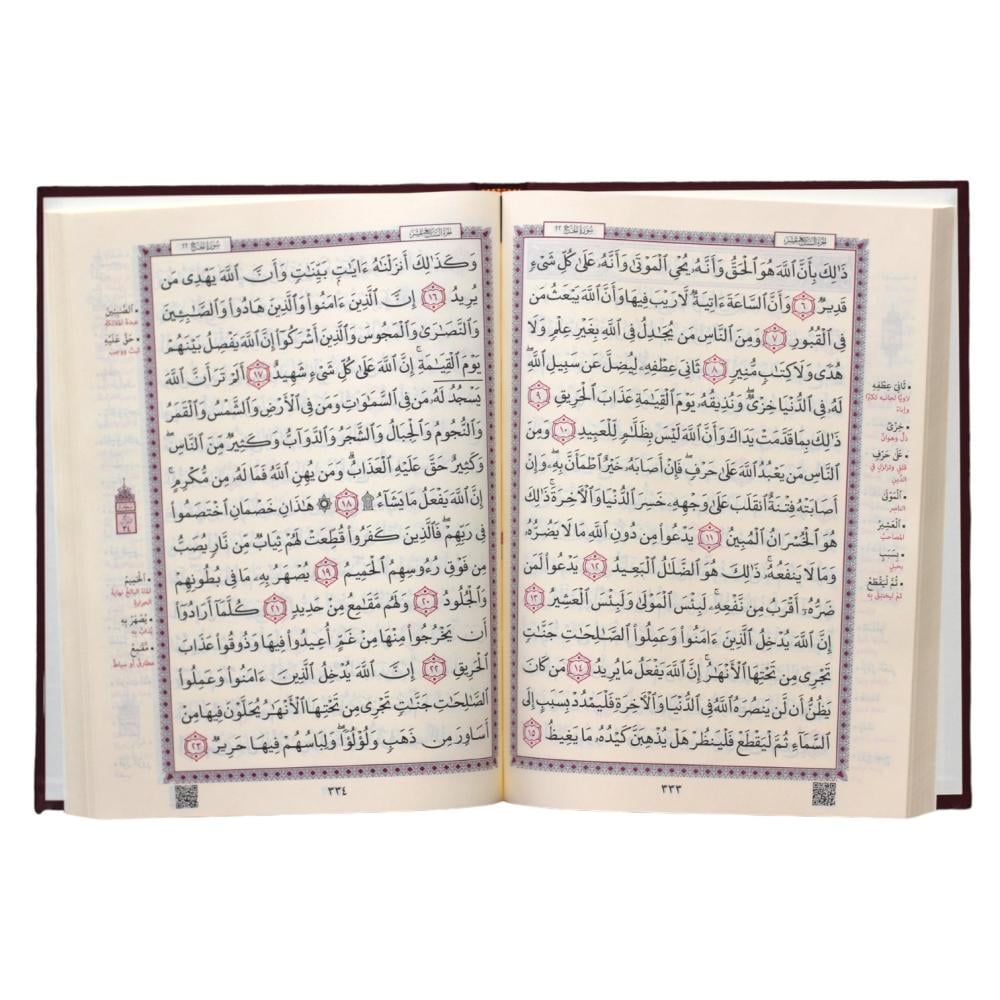 الجزء السابع عشر
سورة الحج ٢٢
ذَٰلِكَ بِأَنَّ ٱللَّهَ هُوَ ٱلْحَقُّ وَأَنَّهُۥ يُحْىِ ٱلْمَوْتَىٰ وَأَنَّهُۥ عَلَىٰ كُلِّ شَىْءٍ
قَدِيرٌ ٦ وَأَنَّ ٱلسَّاعَةَ ءَاتِيَةٌ لَّا رَيْبَ فِيهَا وَأَنَّ ٱللَّهَ يَبْعَثُ مَن
فِى ٱلْقُبُورِ ٧ وَمِنَ ٱلنَّاسِ مَن يُجَٰدِلُ فِى ٱللَّهِ بِغَيْرِ عِلْمٍ وَلَا
هُدًى وَلَا كِتَٰبٍ مُّنِيرٍ ٨ ثَانِىَ عِطْفِهِۦ لِيُضِلَّ عَن سَبِيلِ ٱللَّهِ ۖ
لَهُۥ فِى ٱلدُّنْيَا خِزْىٌ ۖ وَنُذِيقُهُۥ يَوْمَ ٱلْقِيَٰمَةِ عَذَابَ ٱلْحَرِيقِ ٩
ذَٰلِكَ بِمَا قَدَّمَتْ يَدَاكَ وَأَنَّ ٱللَّهَ لَيْسَ بِظَلَّٰمٍ لِّلْعَبِيدِ ١٠ وَمِنَ
ٱلنَّاسِ مَن يَعْبُدُ ٱللَّهَ عَلَىٰ حَرْفٍ ۖ فَإِنْ أَصَابَهُۥ خَيْرٌ ٱطْمَأَنَّ بِهِۦ ۖ وَإِنْ
أَصَابَتْهُ فِتْنَةٌ ٱنقَلَبَ عَلَىٰ وَجْهِهِۦ خَسِرَ ٱلدُّنْيَا وَٱلْءَاخِرَةَ ۚ ذَٰلِكَ
هُوَ ٱلْخُسْرَانُ ٱلْمُبِينُ ١١ يَدْعُوا۟ مِن دُونِ ٱللَّهِ مَا لَا يَضُرُّهُۥ
وَمَا لَا يَنفَعُهُۥ ۚ ذَٰلِكَ هُوَ ٱلضَّلَٰلُ ٱلْبَعِيدُ ١٢ يَدْعُوا۟ لَمَن
ضَرُّهُۥٓ أَقْرَبُ مِن نَّفْعِهِۦ ۚ لَبِئْسَ ٱلْمَوْلَىٰ وَلَبِئْسَ ٱلْعَشِيرُ ١٣
إِنَّ ٱللَّهَ يُدْخِلُ ٱلَّذِينَ ءَامَنُوا۟ وَعَمِلُوا۟ ٱلصَّٰلِحَٰتِ جَنَّٰتٍ
تَجْرِى مِن تَحْتِهَا ٱلْأَنْهَٰرُ ۚ إِنَّ ٱللَّهَ يَفْعَلُ مَا يُرِيدُ ١٤ مَن كَانَ
يَظُنُّ أَن لَّن يَنصُرَهُ ٱللَّهُ فِى ٱلدُّنْيَا وَٱلْءَاخِرَةِ فَلْيَمْدُدْ بِسَبَبٍ إِلَى
ٱلسَّمَآءِ ثُمَّ لْيَقْطَعْ فَلْيَنظُرْ هَلْ يُذْهِبَنَّ كَيْدُهُۥ مَا يَغِيظُ ١٥
• ثَانِىَ عِطْفِهِ
لاويًا لجانبه تكبرًا
وإباء
• خِزْىٌ
ذل وهوان
• عَلَىٰ حَرْفٍ
قلق وتزلزل في
الدين
• ٱلْمَوْلَىٰ
الناصر
• ٱلْعَشِيرُ
المصاحب
• بِسَبَبٍ
بحبل
• ثُمَّ لْيَقْطَعْ
ثم ليختنق به
٣٣٣
الجزء السابع عشر
سورة الحج ٢٢
وَكَذَٰلِكَ أَنزَلْنَٰهُ ءَايَٰتٍۭ بَيِّنَٰتٍ وَأَنَّ ٱللَّهَ يَهْدِى مَن
يُرِيدُ ١٦ إِنَّ ٱلَّذِينَ ءَامَنُوا۟ وَٱلَّذِينَ هَادُوا۟ وَٱلصَّٰبِـِٔينَ
وَٱلنَّصَٰرَىٰ وَٱلْمَجُوسَ وَٱلَّذِينَ أَشْرَكُوٓا۟ إِنَّ ٱللَّهَ يَفْصِلُ بَيْنَهُمْ
يَوْمَ ٱلْقِيَٰمَةِ ۚ إِنَّ ٱللَّهَ عَلَىٰ كُلِّ شَىْءٍ شَهِيدٌ ١٧ أَلَمْ تَرَ أَنَّ ٱللَّهَ
يَسْجُدُ لَهُۥ مَن فِى ٱلسَّمَٰوَٰتِ وَمَن فِى ٱلْأَرْضِ وَٱلشَّمْسُ وَٱلْقَمَرُ
وَٱلنُّجُومُ وَٱلْجِبَالُ وَٱلشَّجَرُ وَٱلدَّوَآبُّ وَكَثِيرٌ مِّنَ ٱلنَّاسِ ۖ
وَكَثِيرٌ حَقَّ عَلَيْهِ ٱلْعَذَابُ ۗ وَمَن يُهِنِ ٱللَّهُ فَمَا لَهُۥ مِن مُّكْرِمٍ ۚ
إِنَّ ٱللَّهَ يَفْعَلُ مَا يَشَآءُ ۩ ١٨ ۞ هَٰذَانِ خَصْمَانِ ٱخْتَصَمُوا۟
فِى رَبِّهِمْ ۖ فَٱلَّذِينَ كَفَرُوا۟ قُطِّعَتْ لَهُمْ ثِيَابٌ مِّن نَّارٍ يُصَبُّ
مِن فَوْقِ رُءُوسِهِمُ ٱلْحَمِيمُ ١٩ يُصْهَرُ بِهِۦ مَا فِى بُطُونِهِمْ
وَٱلْجُلُودُ ٢٠ وَلَهُم مَّقَٰمِعُ مِنْ حَدِيدٍ ٢١ كُلَّمَآ أَرَادُوٓا۟
أَن يَخْرُجُوا۟ مِنْهَا مِنْ غَمٍّ أُعِيدُوا۟ فِيهَا وَذُوقُوا۟ عَذَابَ
ٱلْحَرِيقِ ٢٢ إِنَّ ٱللَّهَ يُدْخِلُ ٱلَّذِينَ ءَامَنُوا۟ وَعَمِلُوا۟
ٱلصَّٰلِحَٰتِ جَنَّٰتٍ تَجْرِى مِن تَحْتِهَا ٱلْأَنْهَٰرُ يُحَلَّوْنَ فِيهَا مِنْ
أَسَاوِرَ مِن ذَهَبٍ وَلُؤْلُؤًا ۖ وَلِبَاسُهُمْ فِيهَا حَرِيرٌ ٢٣
• ٱلصَّٰبِـِٔينَ
عبدة الملائكة
• حَقَّ عَلَيْهِ
ثبت ووجب
٣٤
• ٱلْحَمِيمُ
الماء البالغ نهاية
الحرارة
• يُصْهَرُ بِهِ
يذاب به
• مَّقَٰمِعُ
مطارق أو سياط
٣٣٤